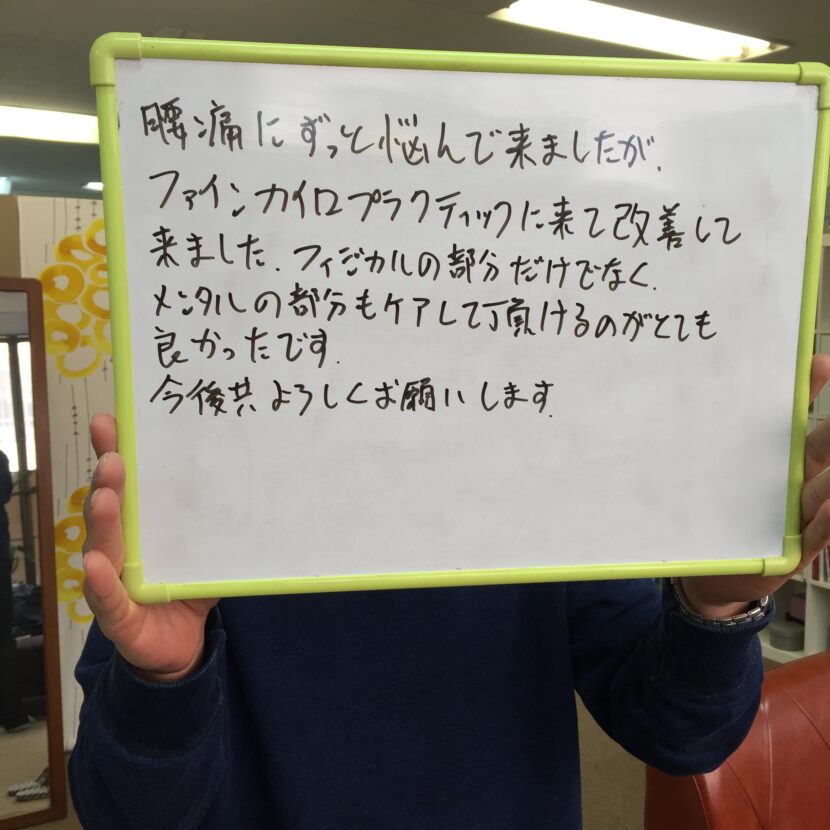 腰痛にずっと悩んで来ましたが、
ファインカイロプラクティックに来て改善して
来ました。フィジカルの部分だけでなく、
メンタルの部分もケアして頂けるのがとても
良かったです。
今後共よろしくお願いします。